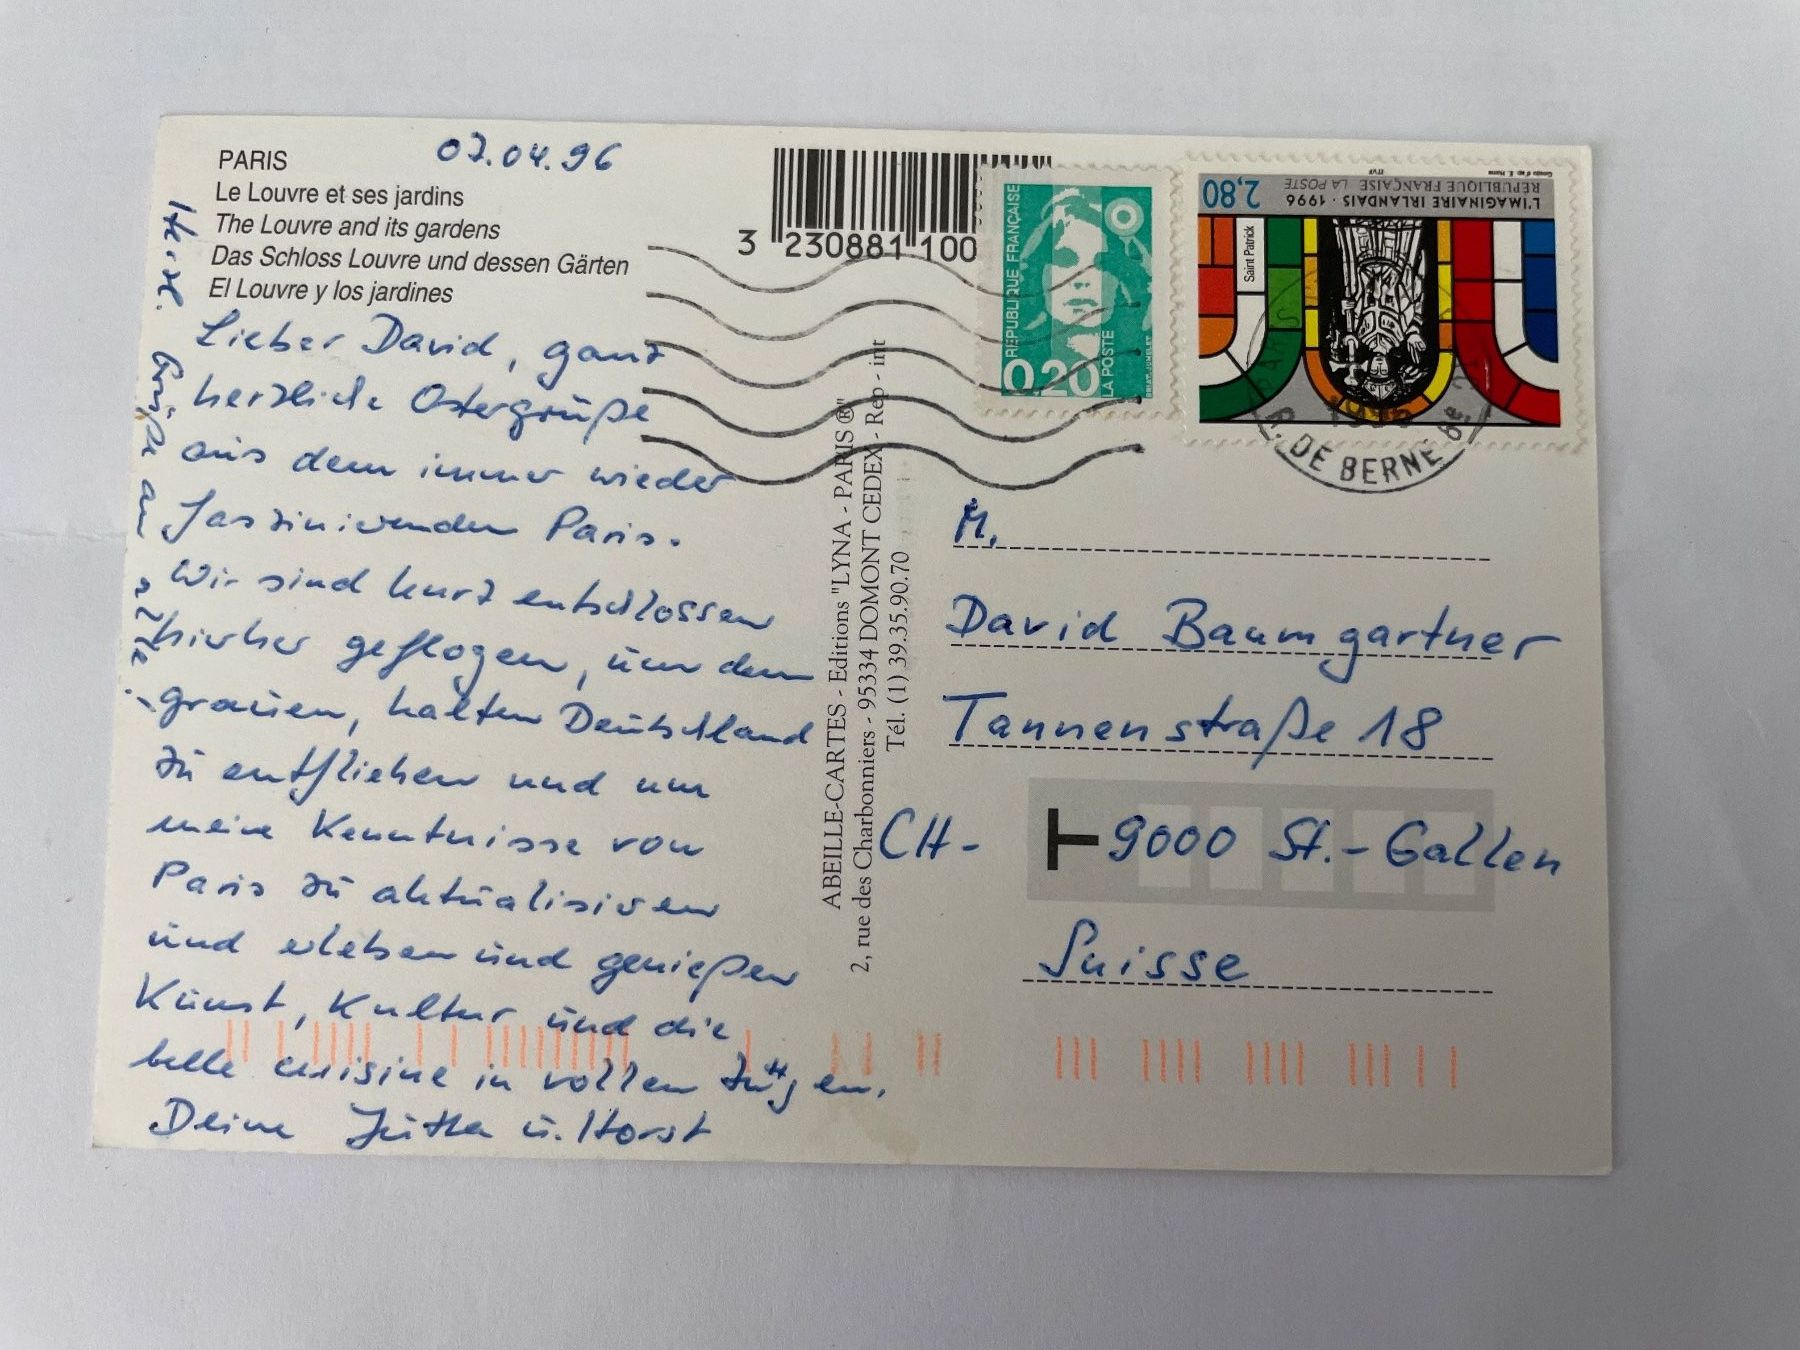 PARIS
Le Louvre et ses jardins
The Louvre and its gardens
Das Schloss Louvre und dessen Gärten
El Louvre y los jardines
07.04.96
Lieber David, ganz
herzliche Ostergrüße
aus dem immer wieder
faszinierenden Paris.
Wir sind kurz entschlossen
hierher geflogen, um dem
grauen, kalten Deutschland
zu entfliehen und um
meine Kenntnisse von
Paris zu aktualisieren
und erleben und genießen
Kunst, Kultur und die
belle cuisine in vollen Zügen.
Deine Jutta u. Horst
Grüße an alle.
3 230881 100
ABEILLE-CARTES - Editions "LYNA - PARIS ®"
2, rue des Charbonniers - 95334 DOMONT CEDEX - Rep - int
Tél. (1) 39.35.90.70
REPUBLIQUE FRANÇAISE
0,20
LA POSTE
L'IMAGINAIRE IRLANDAIS · 1996
REPUBLIQUE FRANÇAISE LA POSTE
2,80
Saint Patrick
R. DE BERNE
M.
David Baumgartner
Tannenstraße 18
CH- 9000 St.-Gallen
Suisse